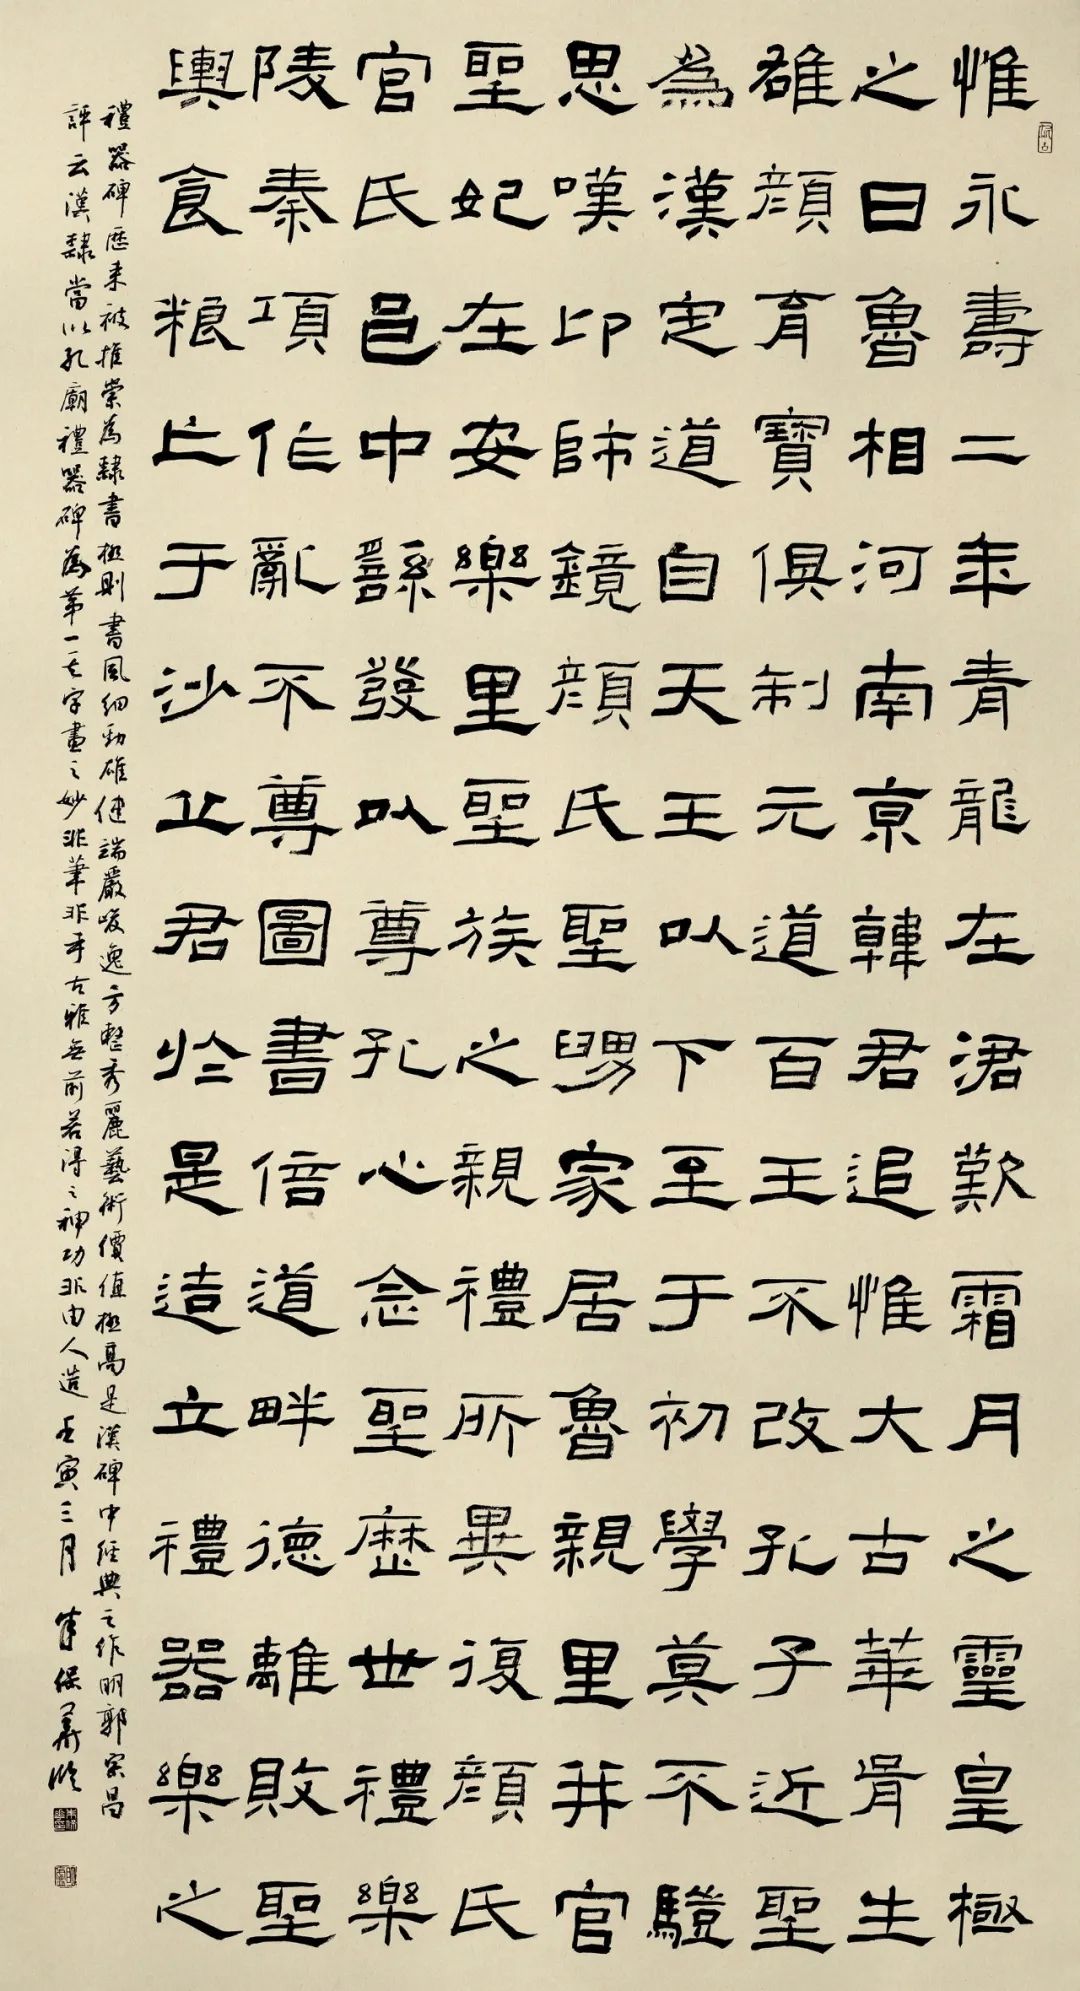 惟永壽二年青龍在涒歎霜月之靈皇極
之日魯相河南京韓君追惟大古華胥生
雄顏育寶俱制元道百王不改孔子近聖
為漢定道自天王以下至于初學莫不驥
思嘆卬師鏡顏氏聖舅家居魯親里并官
聖妃在安樂里聖族之親禮所異復顏氏
官氏邑中繇發以尊孔心念聖歷世禮樂
陵秦項作亂不尊圖書倍道畔德離敗聖
輿食粮亡于沙丘君於是造立禮器樂之
禮器碑歷來被推崇為隸書極則書風細勁雄健端嚴峻逸方整秀麗藝術價值極高是漢碑中經典之作明郭宗昌
評云漢隸當以孔廟禮器碑為第一其字畫之妙非筆非手古雅無前若得之神功非由人造壬寅三月保華臨